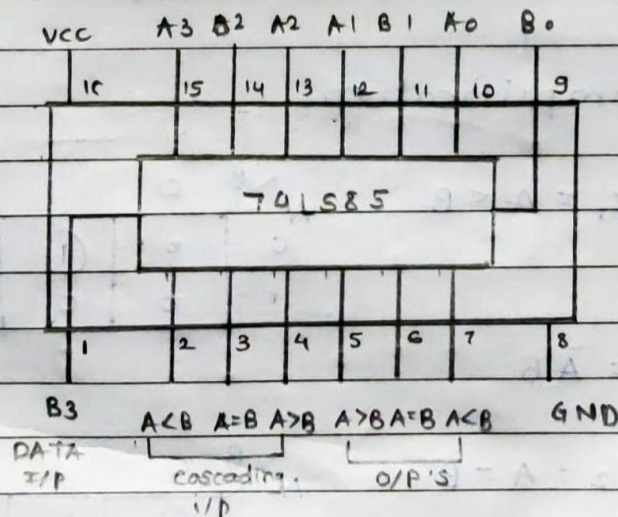 VCC A3 B2 A2 A1 B1 A0 B0
16 15 14 13 12 11 10 9
74LS85
1 2 3 4 5 6 7 8
B3 A<B A=B A>B A>B A=B A<B GND
DATA cascading. O/P'S
I/P i/p